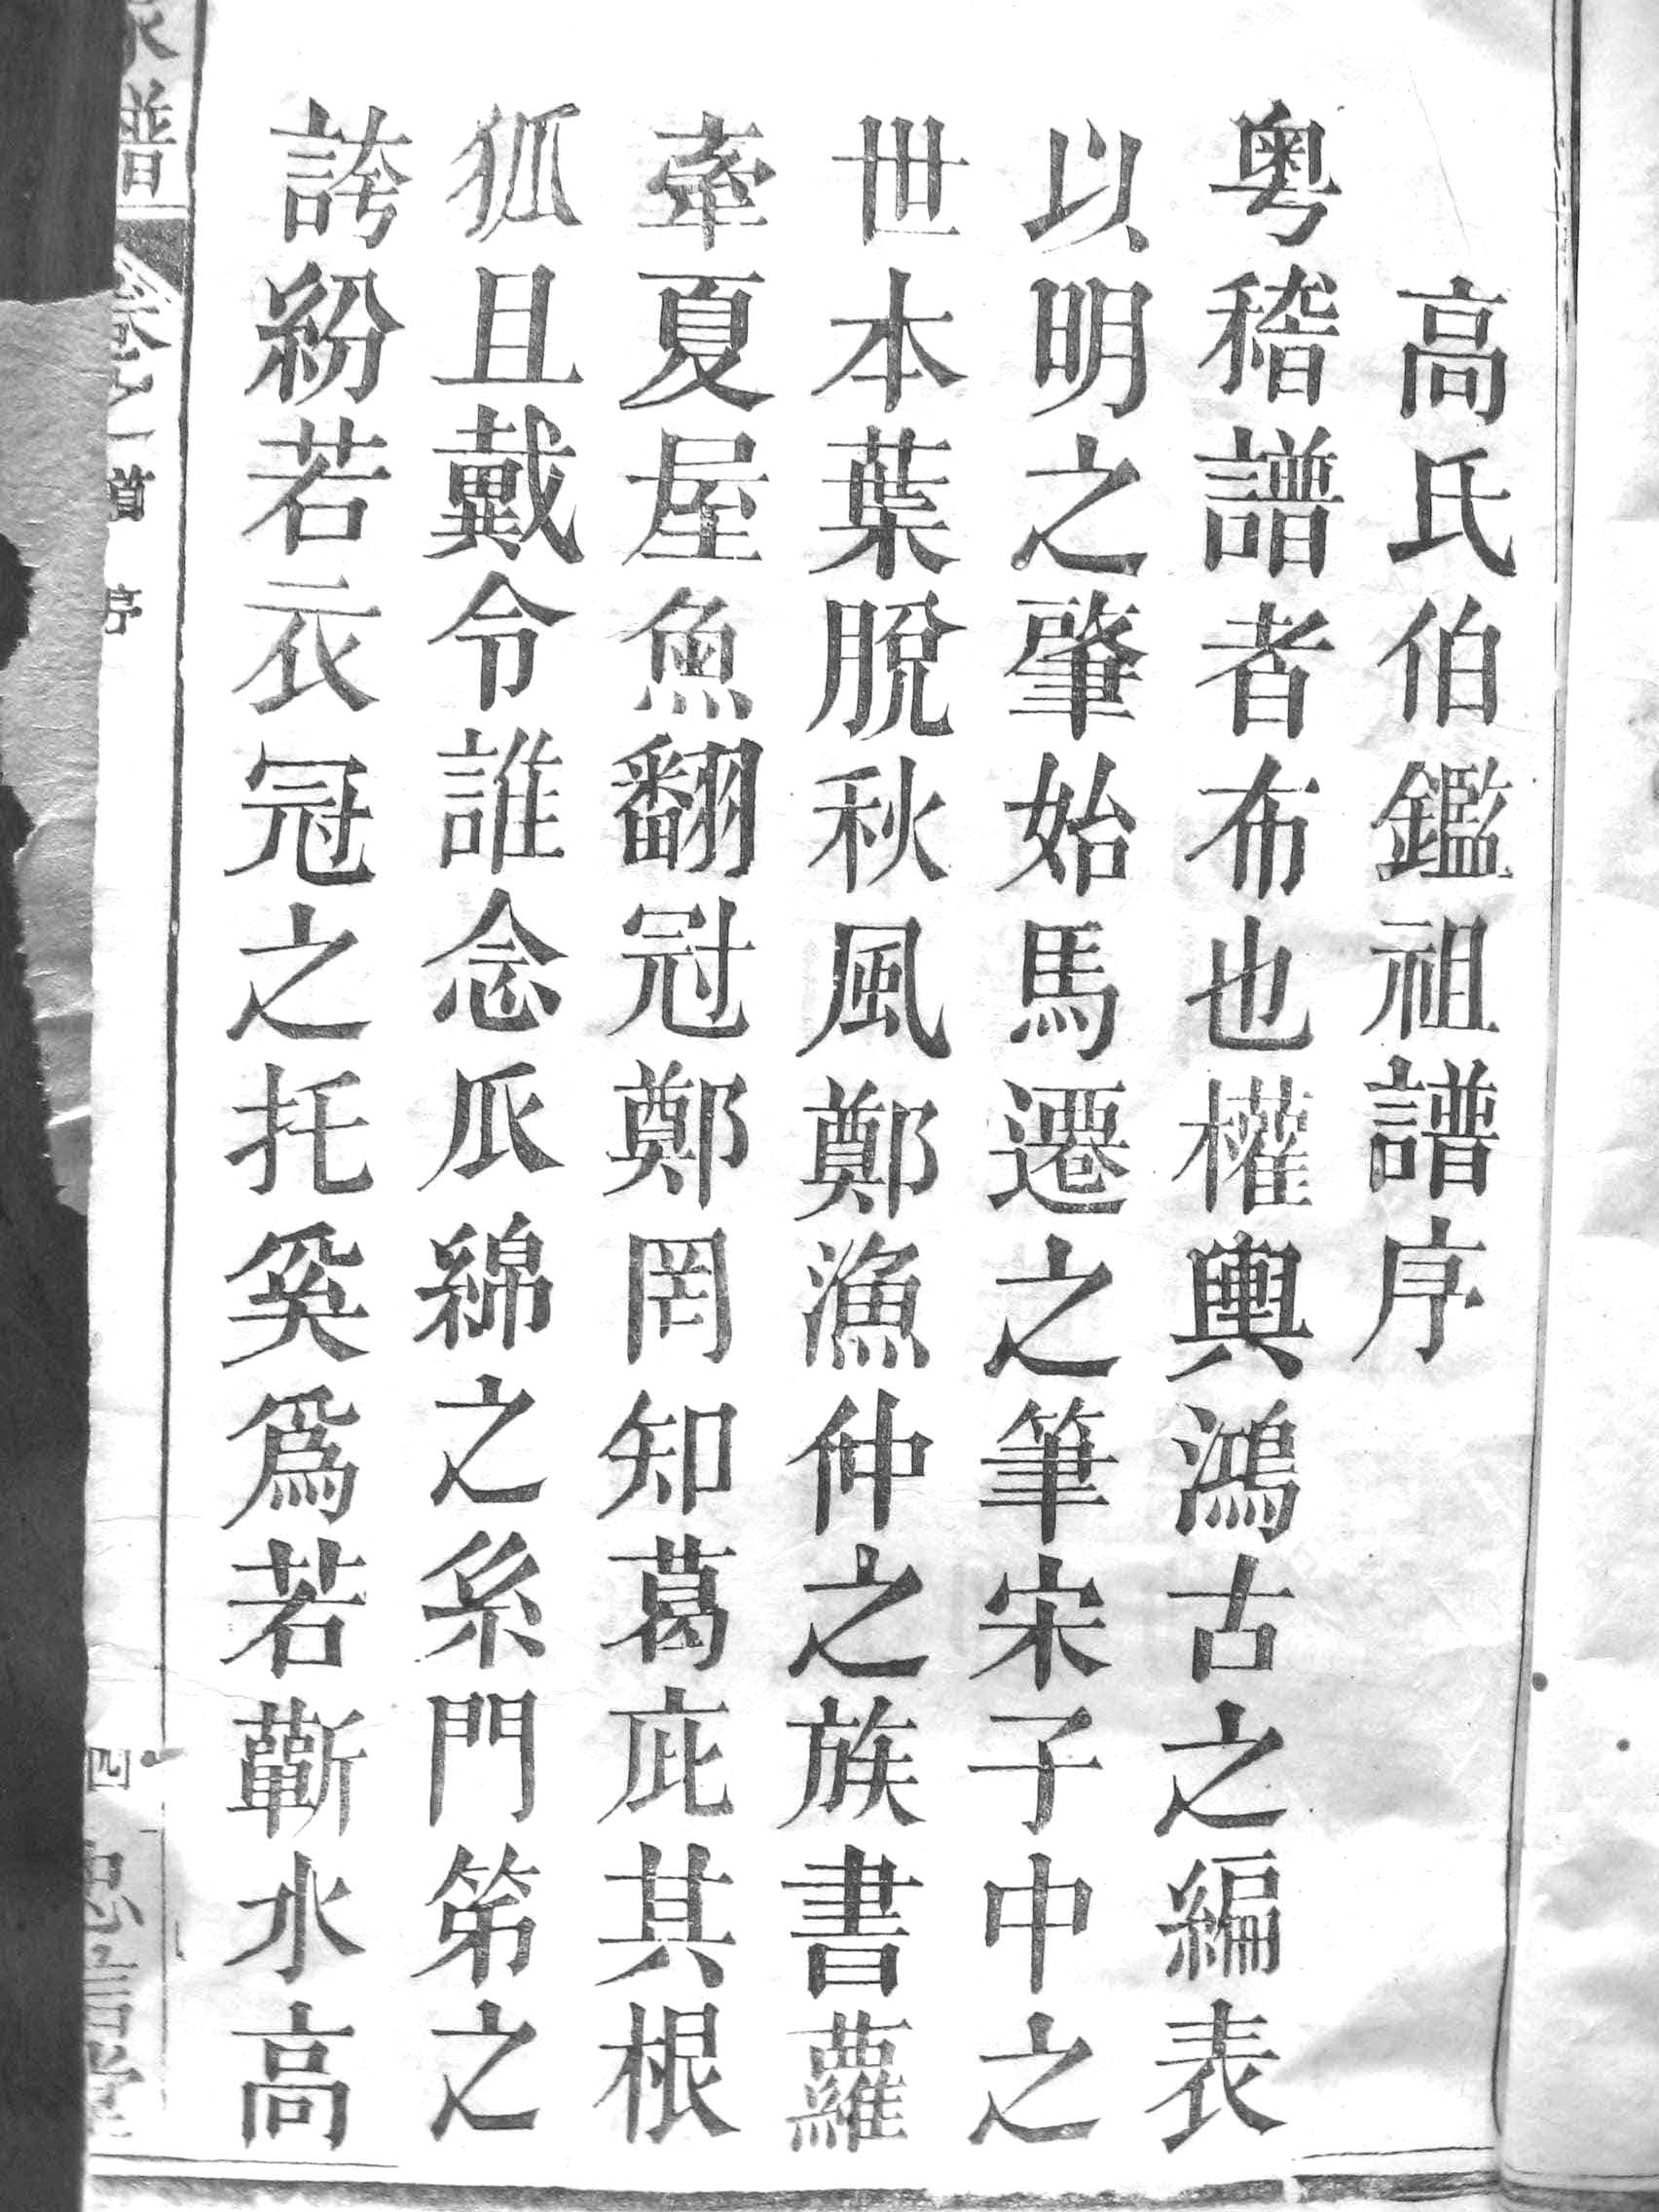 高氏伯鑑祖譜序
粵稽譜者布也權輿鴻古之編表
以明之肇始馬遷之筆宋子中之
世本葉脫秋風鄭漁仲之族書蘿
牽夏屋魚翻冠鄭罔知葛庇其根
狐且戴令誰念瓜綿之系門第之
誇紛若衣冠之托奚為若蘄水高
譜
卷之一首 序
四